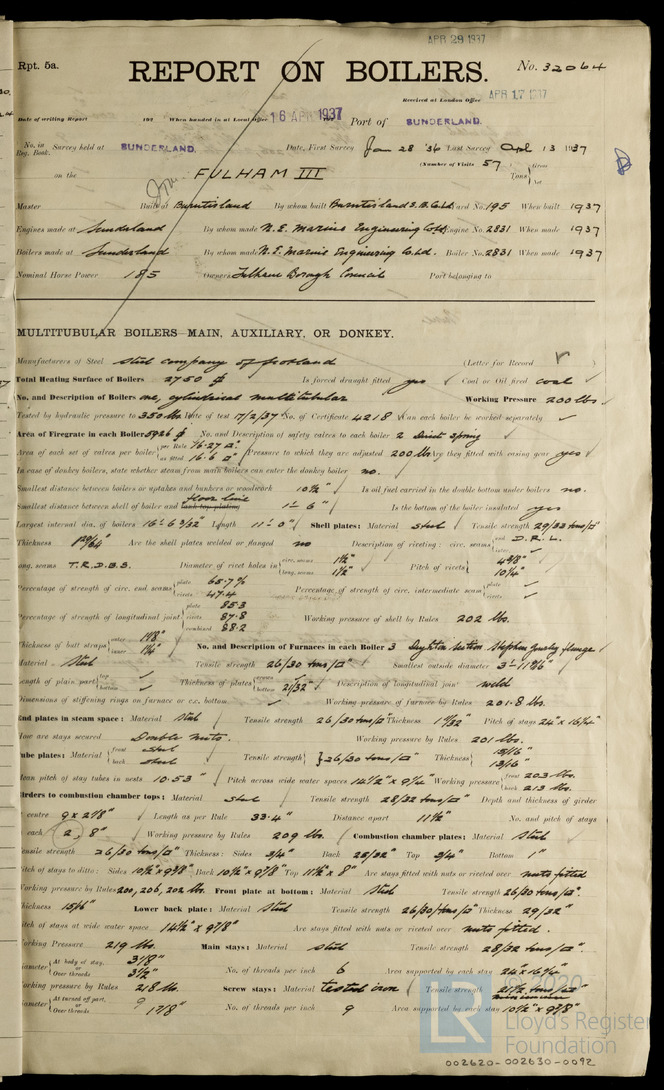 APR 29 1937
Rpt. 5a.
REPORT ON BOILERS.
No. 32064
Received at London Office APR 17 1937
Date of writing Report 192 When handed in at Local Office 16 APR 1937 Port of SUNDERLAND.
No. in Reg. Book. Survey held at SUNDERLAND. Date, First Survey Jan 28 '36 Last Survey April 13 1937
(Number of Visits 57
on the FULHAM III Tons { Gross Net
Master Built at Burntisland By whom built Burntisland S.B.Co.Ltd. Yard No. 195 When built 1937
Engines made at Sunderland By whom made N.E. Marine Engineering Co.Ltd. Engine No. 2831 When made 1937
Boilers made at Sunderland By whom made N.E. Marine Engineering Co.Ltd. Boiler No. 2831 When made 1937
Nominal Horse Power 185 Owners Fulham Borough Council Port belonging to
MULTITUBULAR BOILERS MAIN, AUXILIARY, OR DONKEY.
Manufacturers of Steel Steel Company of Scotland (Letter for Record )
Total Heating Surface of Boilers 2750 Is forced draught fitted yes Coal or Oil fired coal
No. and Description of Boilers one, cylindrical multitubular Working Pressure 200 lbs
Tested by hydraulic pressure to 350 lbs Date of test 17/2/37 No. of Certificate 4218 Can each boiler be worked separately
Area of Firegrate in each Boiler No. and Description of safety valves to each boiler 2 Direct spring
Area of each set of valves per boiler { per Rule 16.27 as fitted 16.6 Pressure to which they are adjusted 200 lbs Are they fitted with easing gear yes
In case of donkey boilers, state whether steam from main boilers can enter the donkey boiler no.
Smallest distance between boilers or uptakes and bunkers or woodwork 10½" Is oil fuel carried in the double bottom under boilers no.
Smallest distance between shell of boiler and floor line 1'-6" Is the bottom of the boiler insulated yes
Largest internal dia. of boilers 16'-6 3/32" Length 11'-0" Shell plates: Material steel Tensile strength 29/33 tons/□"
Thickness 1 29/64" Are the shell plates welded or flanged no Description of riveting: circ. seams { end D.R.L. inter.
long. seams T.R.D.B.S. Diameter of rivet holes in { circ. seams 1½" long. seams 1½" Pitch of rivets { 4 3/8" 10¼"
Percentage of strength of circ. end seams { plate 65.7% rivets 47.4 Percentage of strength of circ. intermediate seam { plate rivets
Percentage of strength of longitudinal joint { plate 85.3 rivets 87.8 combined 88.2 Working pressure of shell by Rules 202 lbs.
Thickness of butt straps { outer inner No. and Description of Furnaces in each Boiler 3 Deighton section Stephen Gourley flange
Material Steel Tensile strength 26/30 tons/□" Smallest outside diameter
Length of plain part { top bottom Thickness of plates { crown bottom 21/32" Description of longitudinal joint weld
Dimensions of stiffening rings on furnace or c.c. bottom Working pressure of furnace by Rules 201.8 lbs.
End plates in steam space: Material steel Tensile strength 26/30 tons/□" Thickness 1 9/32" Pitch of stays 24" x 16¼"
How are stays secured Double nuts. Working pressure by Rules 201 lbs.
Tube plates: Material { front steel back steel Tensile strength } 26/30 tons/□" Thickness { 15/16" 13/16"
Mean pitch of stay tubes in nests 10.53" Pitch across wide water spaces 14½" x 9¼" Working pressure { front 203 lbs. back 213 lbs.
Girders to combustion chamber tops: Material steel Tensile strength 28/32 tons/□" Depth and thickness of girder
centre 9 x 2 1/8" Length as per Rule 33.4" Distance apart 11½" No. and pitch of stays
each 2, 8" Working pressure by Rules 209 lbs. Combustion chamber plates: Material steel
Tensile strength 26/30 tons/□" Thickness: Sides 3/4" Back 25/32" Top 3/4" Bottom 1"
Pitch of stays to ditto: Sides 10½" x 9 7/8" Back 10½" x 9 7/8" Top 11½" x 8" Are stays fitted with nuts or riveted over nuts fitted
Working pressure by Rules 200, 206, 202 lbs. Front plate at bottom: Material steel Tensile strength 26/30 tons/□".
Thickness 15/16" Lower back plate: Material steel Tensile strength 26/30 tons/□" Thickness 29/32"
Pitch of stays at wide water space 14½" x 9 7/8" Are stays fitted with nuts or riveted over nuts fitted.
Working Pressure 219 lbs. Main stays: Material steel Tensile strength 28/32 tons/□".
Diameter { At body of stay, or Over threads 3 1/8" 3½" No. of threads per inch 6 Area supported by each stay 24" x 16¼"
Working pressure by Rules 218 lbs Screw stays: Material tested iron Tensile strength 21½ tons/□" minimum
Diameter { At turned off part, or Over threads 1 7/8" No. of threads per inch 9 Area supported by each stay 10½" x 9 7/8"
2020
LR
Lloyd's Register
Foundation
002620-002630-0092